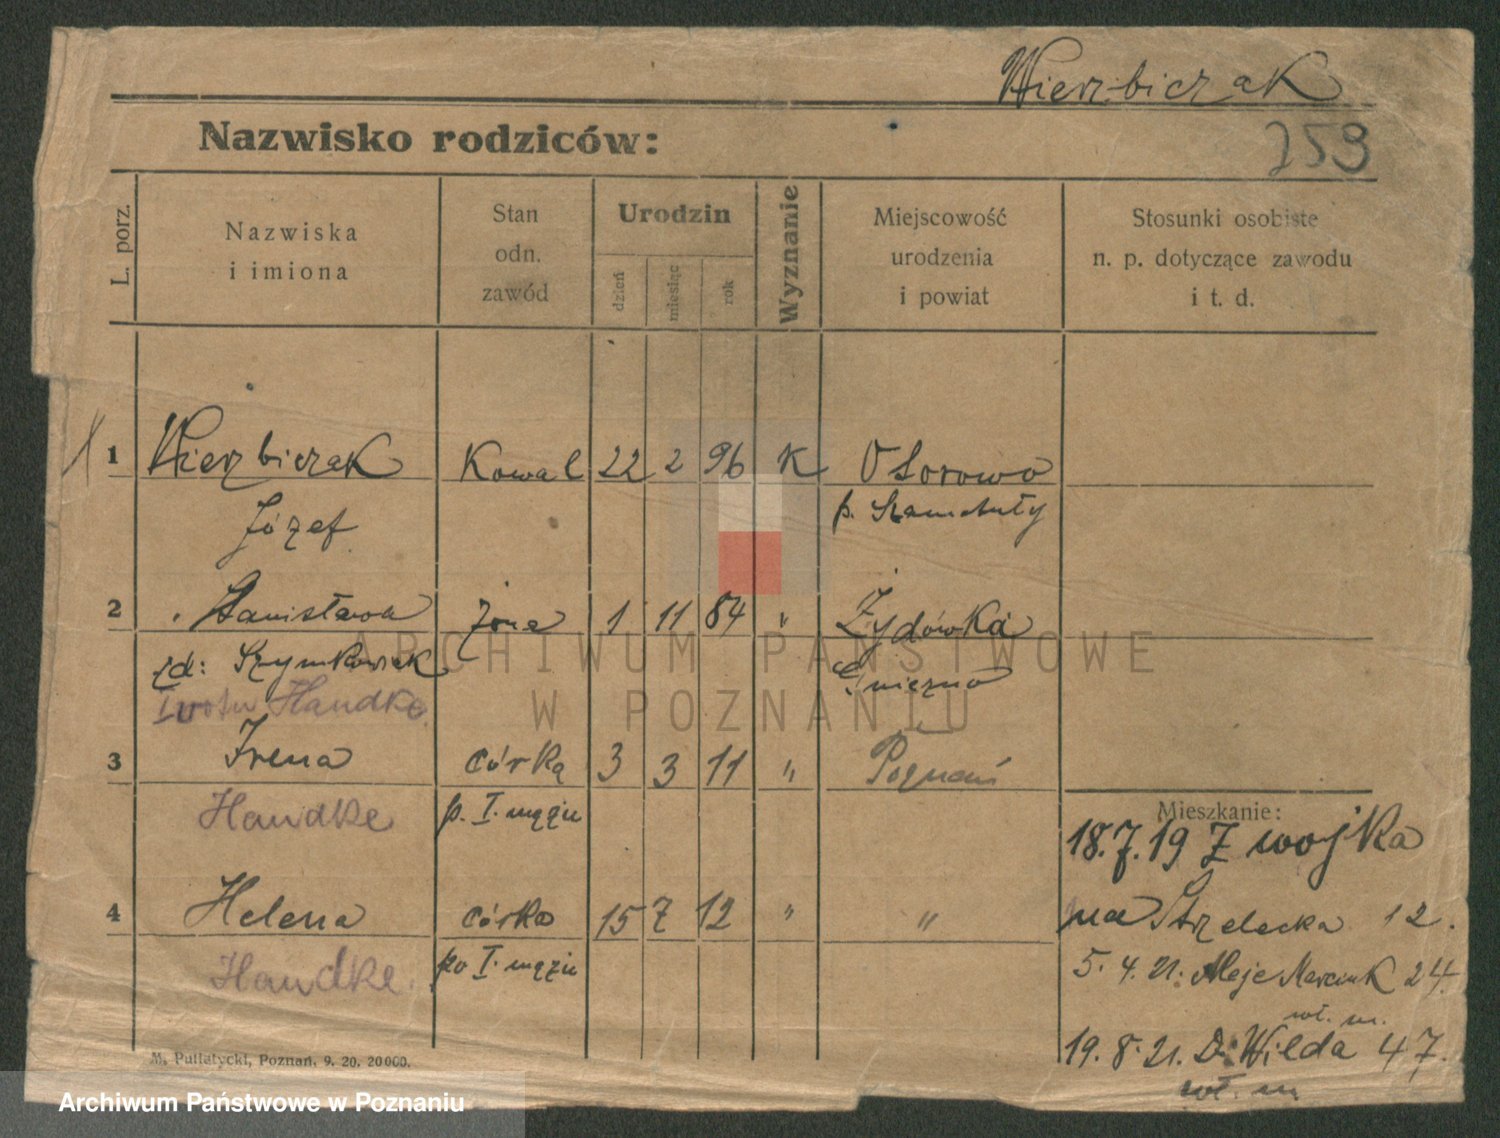 Wierzbiczak
Nazwisko rodziców:
253
L. porz.
Nazwiska
i imiona
Stan
odn.
zawód
Urodzin
dzień
miesiąc
rok
Wyznanie
Miejscowość
urodzenia
i powiat
Stosunki osobiste
n. p. dotyczące zawodu
i t. d.
1 Wierzbiczak Kowal 22 2 96 K Osorowo
Józef p. Szamotuły
2 Stanisława żona 1 11 84 " Żydówka
zd: Szymkowiak Gniezno
I voto Handke
3 Irena córka 3 3 11 " Poznań
Handke p. I. mężu
Mieszkanie:
18.7.19 Z wojska
4 Helena córka 15 7 12 " "
na Strzelecka 12.
Handke. po I. mężu
5.4.21. Aleje Marcink 24.
wł. m.
19.8.21. D. Wilda 47.
wł. m
M. Putiatycki, Poznań, 9. 20. 20000.
ARCHIWUM PAŃSTWOWE
W POZNANIU
Archiwum Państwowe w Poznaniu